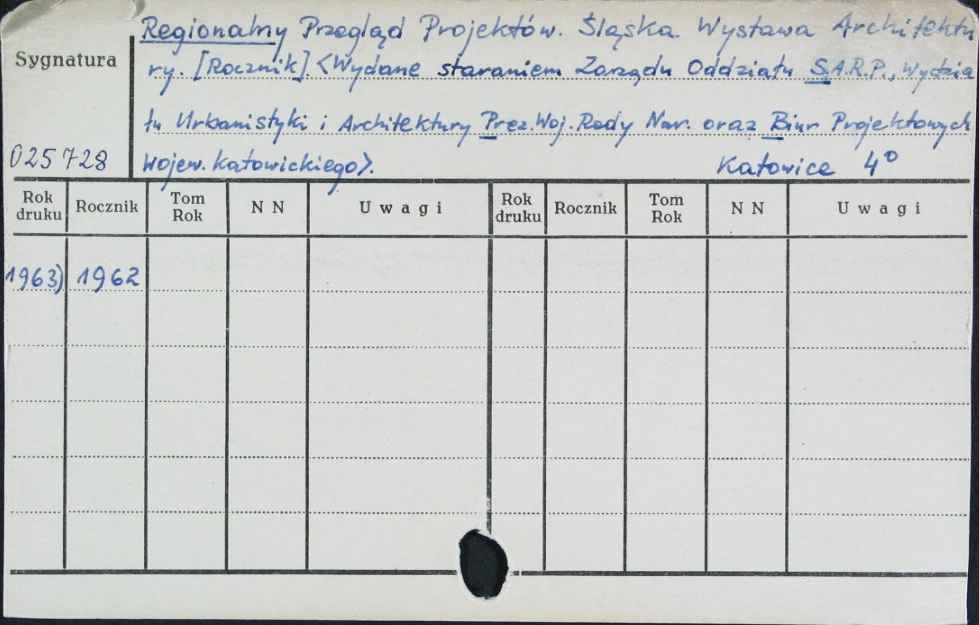 Regionalny Przegląd Projektów. Śląska Wystawa Architektu
Sygnatura
ry. [Rocznik]. <Wydane staraniem Zarządu Oddziału S.A.R.P., Wydzia
łu Urbanistyki i Architektury Prez. Woj. Rady Nar. oraz Biur Projektowych
025728 Wojew. Katowickiego>. Katowice 4°
Rok druku Rocznik Tom Rok N N Uwagi Rok druku Rocznik Tom Rok N N Uwagi
1963) 1962